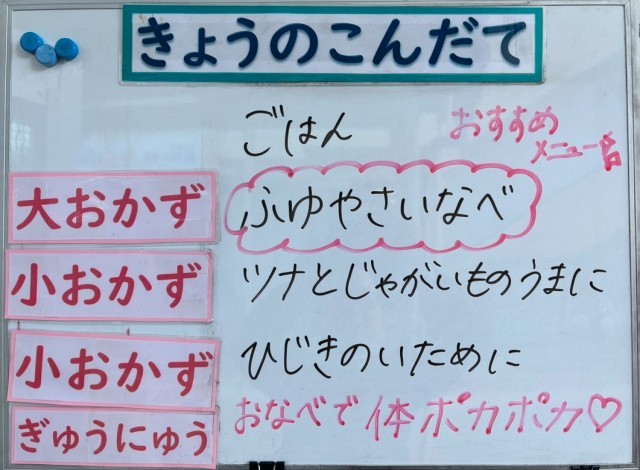 きょうのこんだて
ごはん
おすすめ
メニュー
大おかず ふゆやさいなべ
小おかず ツナとじゃがいものうまに
小おかず ひじきのいために
ぎゅうにゅう おなべで体ポカポカ♡